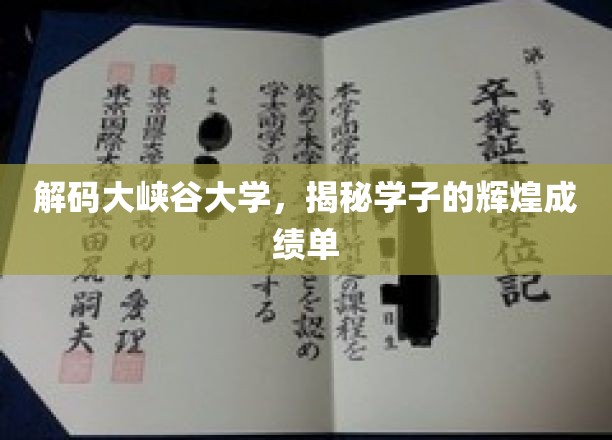 解码大峡谷大学，揭秘学子的辉煌成
绩单
第 号
卒業証 学位記
本学商学部 所定の課程を
修めて本学 ことを認め
学士(商学)の学 授与する
平成
東京国際大学 田村愛理
東京国際大学長田尻嗣夫